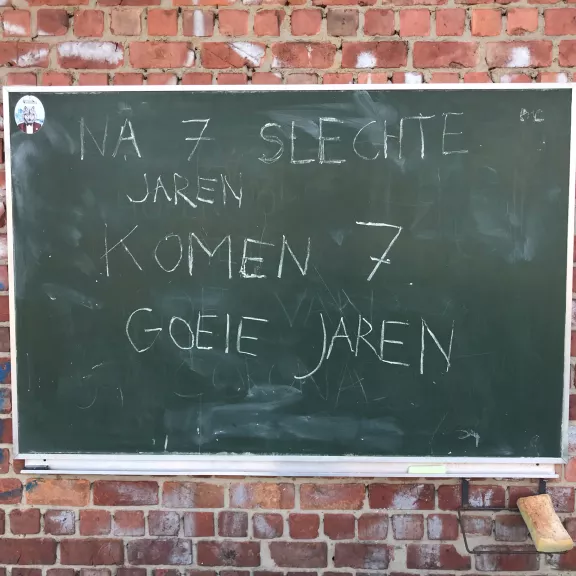 NA 7 SLECHTE
JAREN
KOMEN 7
GOEIE JAREN